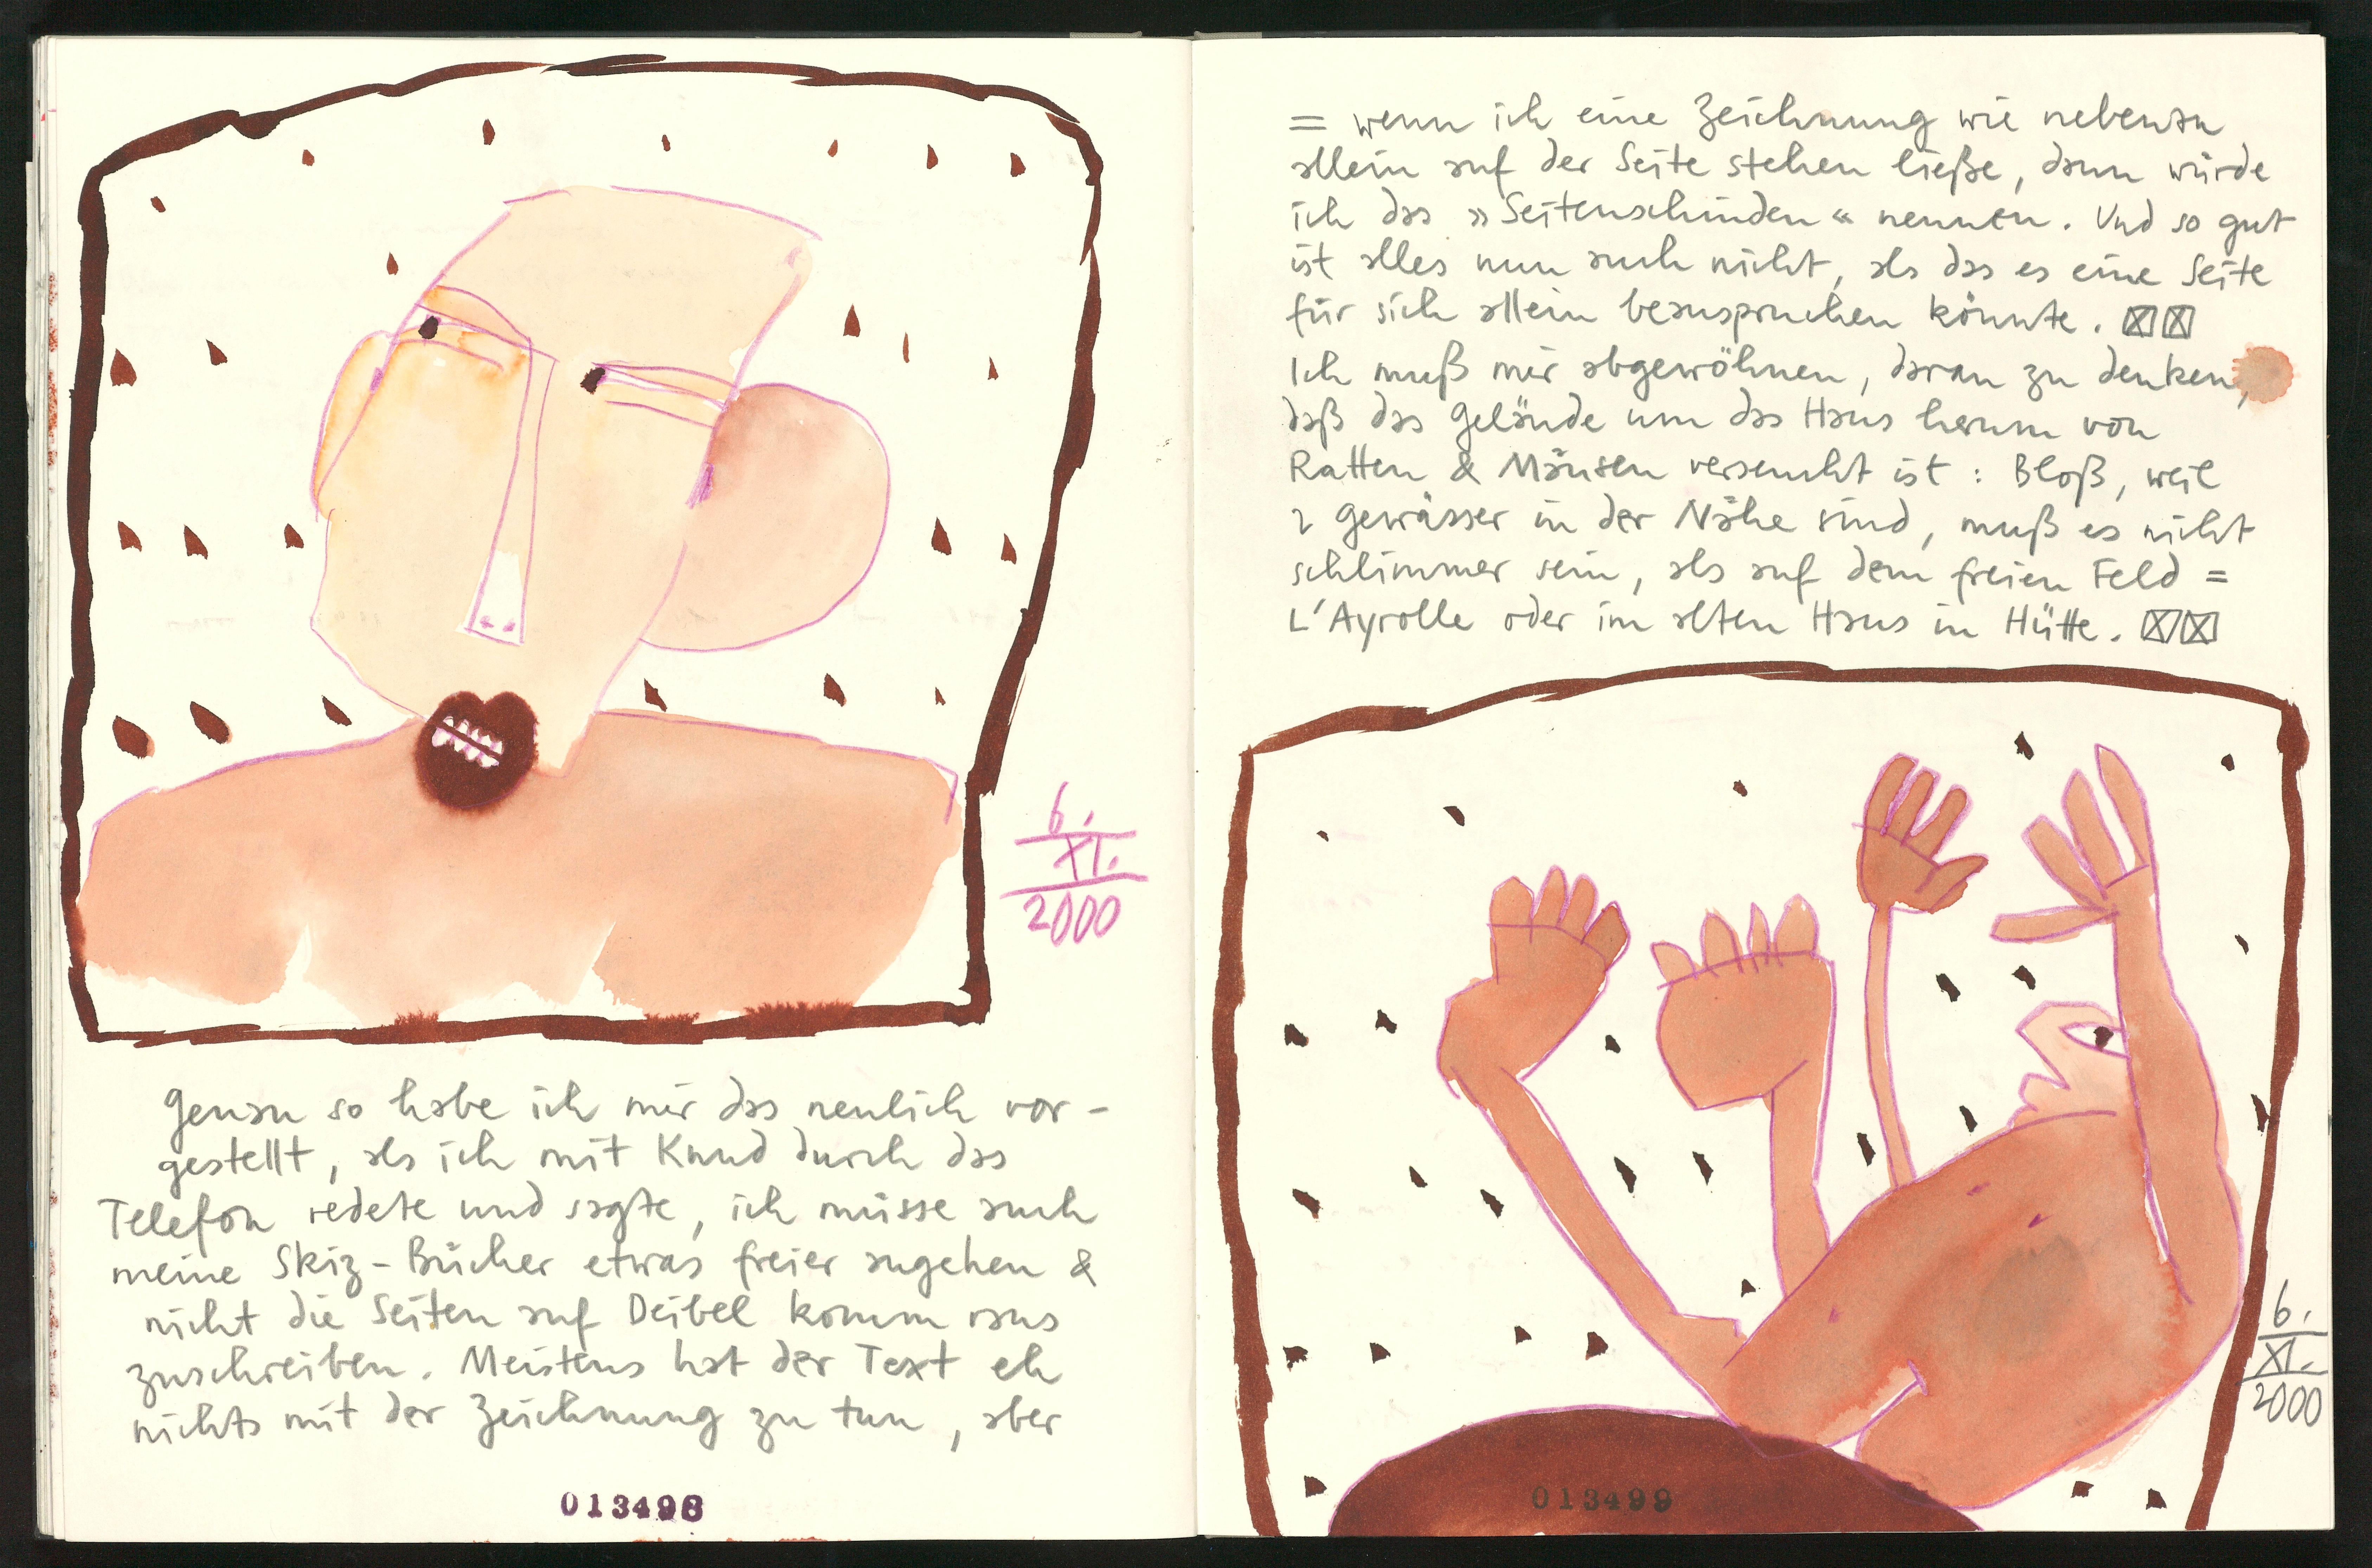 6.
XI.
2000
genau so habe ich mir das neulich vor-
gestellt, als ich mit Knud durch das
Telefon redete und sagte, ich müsse auch
meine Skiz-Bücher etwas freier angehen &
nicht die Seiten auf Deibel komm raus
zuschreiben. Meistens hat der Text eh
nichts mit der Zeichnung zu tun, aber
013498
= wenn ich eine Zeichnung wie nebenan
allein auf der Seite stehen ließe, dann würde
ich das »Seitenschinden« nennen. Und so gut
ist alles nun auch nicht, als das es eine Seite
für sich allein beanspruchen könnte.
Ich muß mir abgewöhnen, daran zu denken,
daß das Gelände um das Haus herum von
Ratten & Mäusen verseucht ist: Bloß, weil
2 Gewässer in der Nähe sind, muß es nicht
schlimmer sein, als auf dem freien Feld =
L'Ayrolle oder im alten Haus in Hütte.
6.
XI.
2000
013499